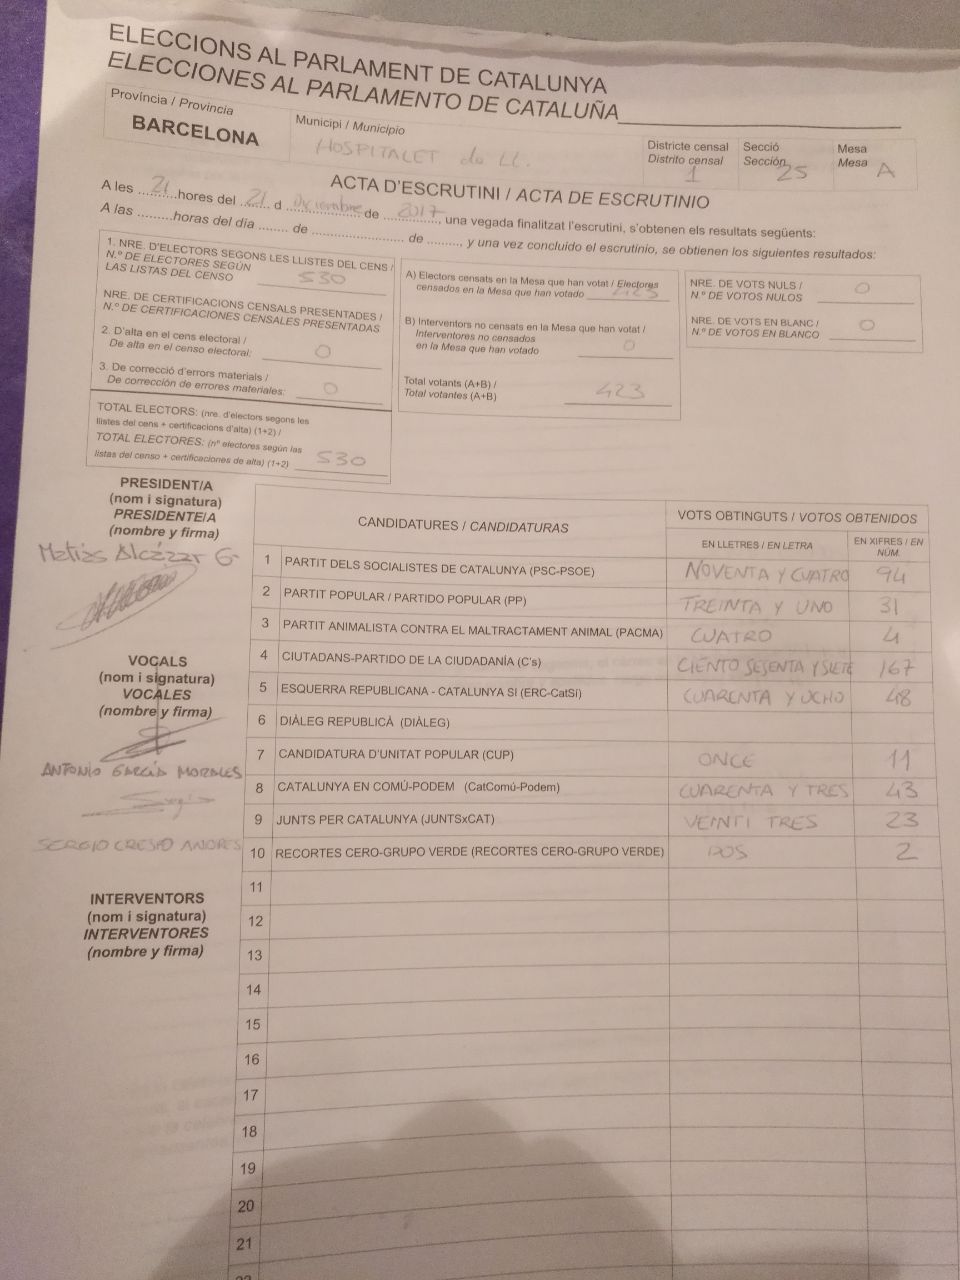 ELECCIONS AL PARLAMENT DE CATALUNYA
ELECCIONES AL PARLAMENTO DE CATALUÑA
Província / Provincia
BARCELONA
Municipi / Municipio
HOSPITALET de LL.
Districte censal
Distrito censal
1
Secció
Sección
25
Mesa
Mesa
A
ACTA D'ESCRUTINI / ACTA DE ESCRUTINIO
A les 21 hores del 21 d Diciembre de 2017, una vegada finalitzat l'escrutini, s'obtenen els resultats següents:
A las .........horas del día ........ de ........................ de ........., y una vez concluido el escrutinio, se obtienen los siguientes resultados:
1. NRE. D'ELECTORS SEGONS LES LLISTES DEL CENS /
N.º DE ELECTORES SEGÚN
LAS LISTAS DEL CENSO 530
NRE. DE CERTIFICACIONS CENSALS PRESENTADES /
N.º DE CERTIFICACIONES CENSALES PRESENTADAS
2. D'alta en el cens electoral /
De alta en el censo electoral: 0
3. De correcció d'errors materials /
De corrección de errores materiales: 0
TOTAL ELECTORS: (nre. d'electors segons les
llistes del cens + certificacions d'alta) (1+2) /
TOTAL ELECTORES: (nº electores según las
listas del censo + certificaciones de alta) (1+2) 530
A) Electors censats en la Mesa que han votat / Electores
censados en la Mesa que han votado 423
B) Interventors no censats en la Mesa que han votat /
Interventores no censados
en la Mesa que han votado 0
Total votants (A+B) /
Total votantes (A+B) 423
NRE. DE VOTS NULS /
N.º DE VOTOS NULOS 0
NRE. DE VOTS EN BLANC /
N.º DE VOTOS EN BLANCO 0
PRESIDENT/A
(nom i signatura)
PRESIDENTE/A
(nombre y firma)
Matías Alcázar G
VOCALS
(nom i signatura)
VOCALES
(nombre y firma)
ANTONIO GARCÍA MORALES
Sergio
SERGIO CRESPO ANDRES
INTERVENTORS
(nom i signatura)
INTERVENTORES
(nombre y firma)
CANDIDATURES / CANDIDATURAS
VOTS OBTINGUTS / VOTOS OBTENIDOS
EN LLETRES / EN LETRA
EN XIFRES / EN NÚM.
1 PARTIT DELS SOCIALISTES DE CATALUNYA (PSC-PSOE) NOVENTA Y CUATRO 94
2 PARTIT POPULAR / PARTIDO POPULAR (PP) TREINTA Y UNO 31
3 PARTIT ANIMALISTA CONTRA EL MALTRACTAMENT ANIMAL (PACMA) CUATRO 4
4 CIUTADANS-PARTIDO DE LA CIUDADANÍA (C's) CIENTO SESENTA Y SIETE 167
5 ESQUERRA REPUBLICANA - CATALUNYA SÍ (ERC-CatSí) CUARENTA Y OCHO 48
6 DIÀLEG REPUBLICÀ (DIÀLEG)
7 CANDIDATURA D'UNITAT POPULAR (CUP) ONCE 11
8 CATALUNYA EN COMÚ-PODEM (CatComú-Podem) CUARENTA Y TRES 43
9 JUNTS PER CATALUNYA (JUNTSxCAT) VEINTI TRES 23
10 RECORTES CERO-GRUPO VERDE (RECORTES CERO-GRUPO VERDE) DOS 2
11
12
13
14
15
16
17
18
19
20
21